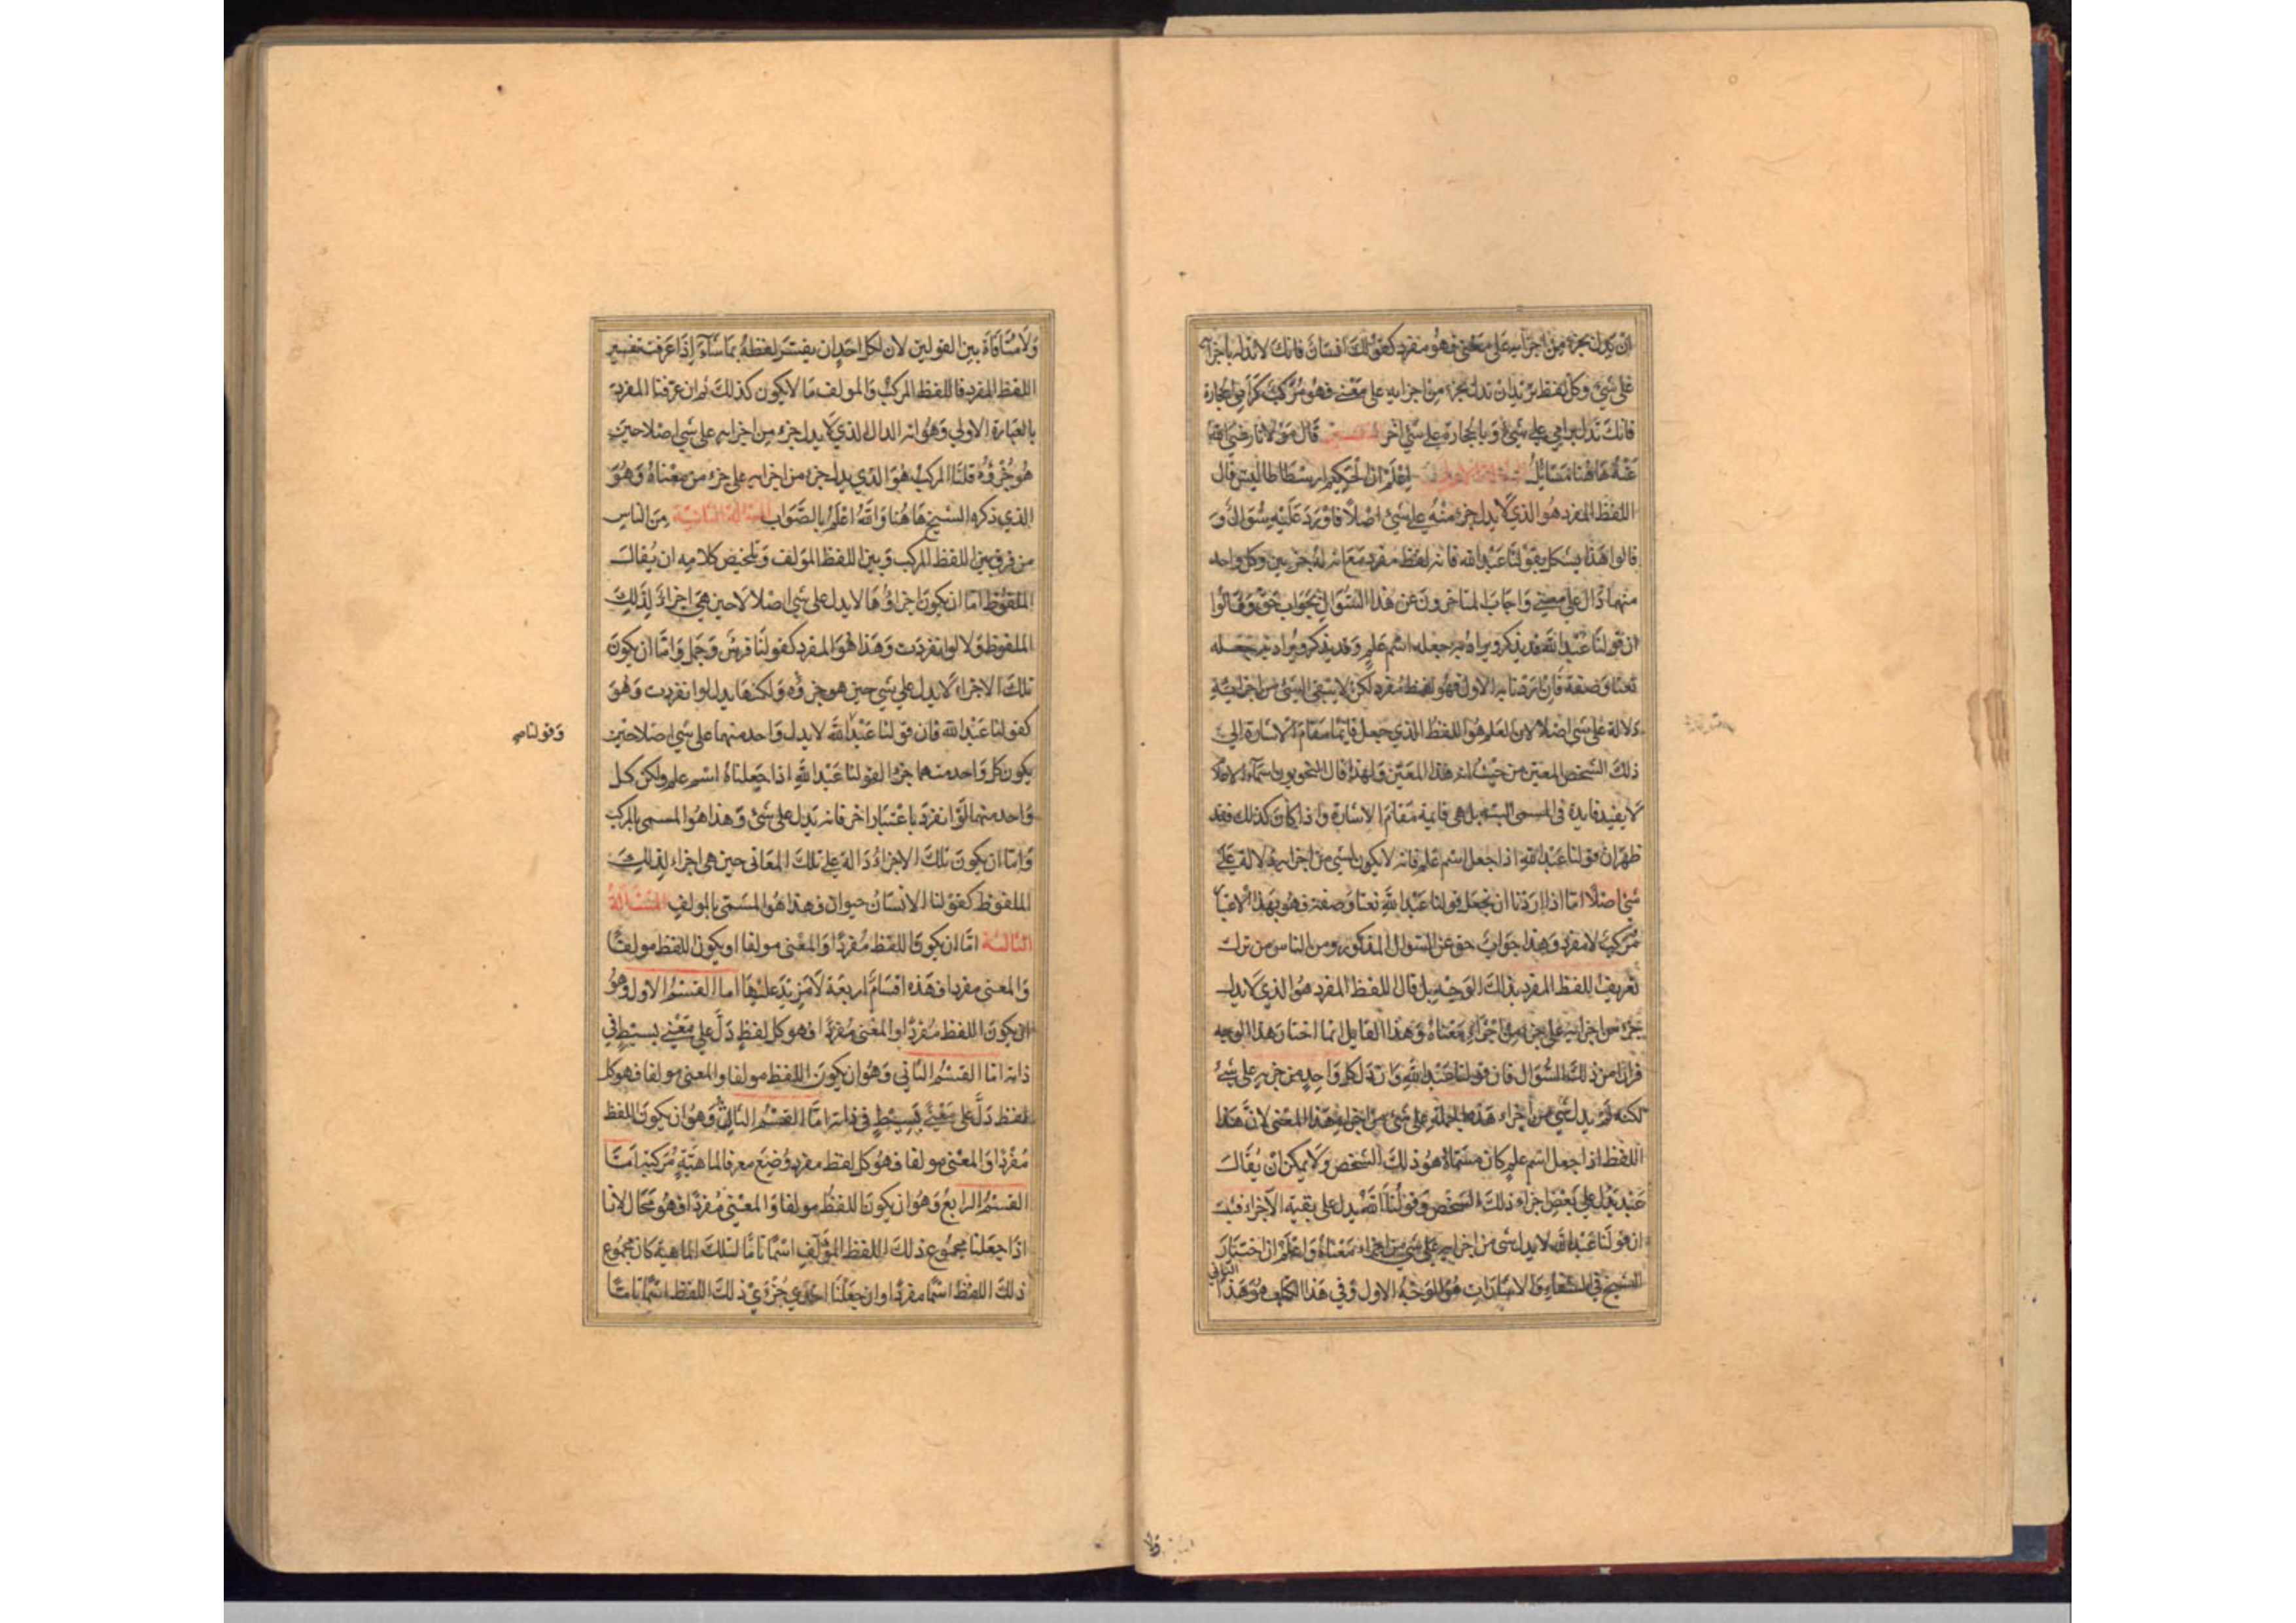 ان تدل بجزء من اجزائه على معنى فهو مفرد كقولك انسان فانك لا تدل باجزائه
على شيء وكل لفظ تريد ان تدل بجزء من اجزايه على معنى فهو مركب كرامي الحجارة
فانك تدل برامي على شيء وبالحجارة على شيء اخر التفسير قال مولانا رضي الله
عنه هاهنا مسايل المسئلة الاولى اعلم ان الحكيم ارسطاطاليس قال
اللفظ المفرد هو الذي لا يدل جزء منه على شيء اصلا فاورد عليه سؤال و
قالوا هذا يشكل بقولنا عبد الله فانه لفظ مفرد مع ان له جزيين وكل واحد
منهما دال على معنى واجاب المتاخرون عن هذا السوال بجواب حق وقالوا
ان قولنا عبد الله قد يذكر ويراد به جعله اسم علم وقد يذكر ويراد به جعله
نعتا وصفة فان اردنا به الاول فهو لفظ مفرد لكن لا يبقى لشيء من اجزايه
دلالة على شي اصلا لان العلم هو اللفظ الذي جعل قايما مقام الاشارة الى
ذلك الشخص المعين من حيث انه هذا المعين ولهذا قال النحويون اسماء الاعلام
لا يفيد فايدة في المسمى البتة بل هي قايمة مقام الاشارة واذا كان كذلك فقد
ظهر ان قولنا عبد الله اذا جعل اسم علم فانه لا يكون لشي من اجزايه دلالة على
شي اصلا اما اذا اردنا ان نجعل قولنا عبد الله نعتا وصفة فهو بهذا الاعتبار
مركب لا مفرد وهذا جواب حق عن السوال المذكور ومن الناس من ترك
تعريف اللفظ المفرد بذلك الوجه بل قال اللفظ المفرد هو الذي لا يدل
جزء من اجزايه على جزء من اجزاء معناه وهذا القايل انما اختار هذا الوجه
فرارا من ذلك السؤال فان قولنا عبد الله وان دل كل واحد من جزيه على شيء
لكنه لم يدل شي من اجزاء هذه الجملة على شي من اجزاء هذا المعنى لان هذا
اللفظ اذا جعل اسم علم كان مسماه هو ذلك الشخص ولا يمكن ان يقال
عبد يدل على بعض اجزاء ذلك الشخص وقولنا الله يدل على بقية الاجزاء فثبت
ان قولنا عبد الله لا يدل شي من اجزايه على شي من اجزاء معناه واعلم ان اختيار
الشيخ في الشفاء والاشارات هو الوجه الاول وفي هذا الكتاب هو هذا
الثاني
ولا منافاة بين القولين لان لكل احد ان يفسر لفظه بما شاء اذا عرفت تفسير
اللفظ المفرد فاللفظ المركب والمولف ما لا يكون كذلك ثم ان عرفنا المفرد
بالعبارة الاولى وهو انه الدال الذي لا يدل جزء من اجزايه على شي اصلا حين
هو جزؤه قلنا المركب هو الذي يدل جزء من اجزايه على جزء من معناه وهو
الذي ذكره الشيخ هاهنا والله اعلم بالصواب المسئلة الثانية من الناس
من فرق بين اللفظ المركب وبين اللفظ المولف وتلخيص كلامه ان يقال
الملفوظ اما ان يكون اجزاؤها لا يدل على شي اصلا لا حين هي اجزاء لذلك
الملفوظ ولا لو انفردت وهذا هو المفرد كقولنا فرس وجمل واما ان يكون
تلك الاجزاء لا يدل على شي حين هو جزؤه ولكنها يدل لو انفردت وهو
كقولنا عبد الله فان قولنا عبد الله لا يدل واحد منهما على شي اصلا حين
وقولنا
يكون كل واحد منهما جزءا لقولنا عبد الله اذا جعلناه اسم علم ولكن كل
واحد منهما لو انفرد باعتبار اخر فانه يدل على شي وهذا هو المسمى بالمركب
واما ان يكون تلك الاجزاء دالة على تلك المعاني حين هي اجزاء لذلك
الملفوظ كقولنا الانسان حيوان فهذا هو المسمى بالمولف المسئلة
الثالثة اما ان يكون اللفظ مفردا والمعنى مولفا او يكون اللفظ مولفا
والمعنى مفردا فهذه اقسام اربعة لا مزيد عليها اما القسم الاول وهو
ان يكون اللفظ مفردا والمعنى مفردا فهو كل لفظ دل على معنى بسيط في
ذاته اما القسم الثاني وهو ان يكون اللفظ مولفا والمعنى مولفا فهو كل
لفظ دل على معنى بسيط في ذاته اما القسم الثالث وهو ان يكون اللفظ
مفردا والمعنى مولفا فهو كل لفظ مفرد وضع معرفا لماهية مركبة اما
القسم الرابع وهو ان يكون اللفظ مولفا والمعنى مفردا فهو محال لانا
اذا جعلنا مجموع ذلك اللفظ المؤلف اسما تاما لتلك الماهية كان مجموع
ذلك اللفظ اسما مفردا وان جعلنا احدى جزؤي ذلك اللفظ اسما تاما